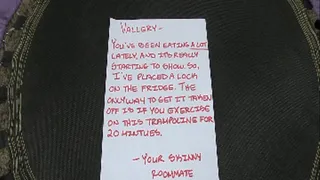 VALLERY-
YOU'VE BEEN EATING A LOT
LATELY, AND IT'S REALLY
STARTING TO SHOW. SO,
I'VE PLACED A LOCK
ON THE FRIDGE. THE
ONLY WAY TO GET IT TAKEN
OFF IS IF YOU EXERCISE
ON THIS TRAMPOLINE FOR
20 MINTUES.
-YOUR SKINNY
ROOMMATE